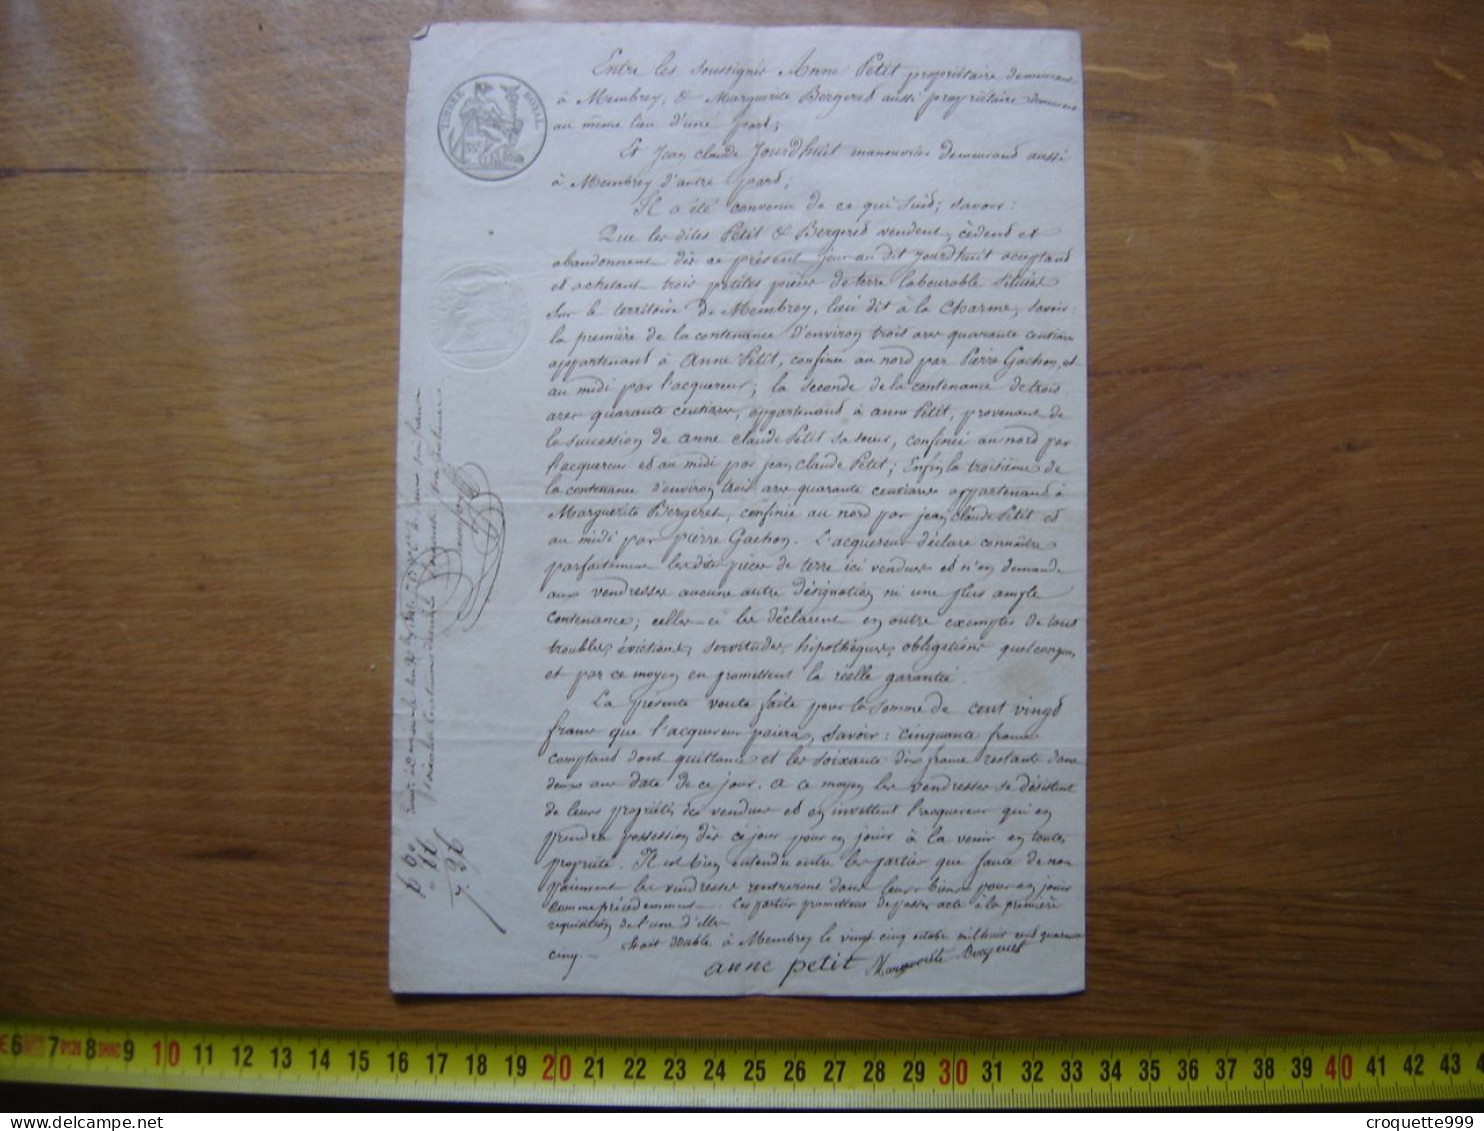 TIMBRE ROYAL
Entre les soussignés Anne Petit propriétaire demeurant
à Membrey, & Marguerite Bergeret aussi propriétaire demeurant
au même lieu d'une part;
Et Jean Claude Jourdhuit manouvrier demeurand aussi
à Membrey d'autre pard;
Il a été convenu de ce qui suid; savoir:
Que les dites Petit & Bergeret vendent, cèdend et
abandonnent dès ce présent jour au dit Jourdhuit acceptand
et achetant trois petites pièces de terre labourable situées
sur le territoire de Membrey, lieu dit à la Charme, savoir:
la première de la contenance d'environ trois ares quarante centiares
appartenand à Anne Petit, confinée au nord par Pierre Gachon, et
au midi par l'acquereur; la seconde de la contenance de trois
ares quarante centiares, appartenand à anne Petit, provenant de
la succession de anne Claude Petit sa soeur, confinée au nord par
l'acquereur et au midi par jean claude Petit; Enfin la troisième de
la contenance d'environ trois ares quarante centiares appartenand à
Marguerite Bergeret, confinée au nord par jean Claude Petit et
au midi par pierre Gachon. L'acquereur déclare connaître
parfaitement les dites pièces de terre ici vendues et n'en demande
aux vendresses aucune autre désignation ni une plus ample
contenance; celles-ci les déclarent en outre exemptes de tous
troubles, évictions, servitudes, hipothèques, obligations quelconques,
et par ce moyen en promettent la réelle garantie.
La présente vente faite pour la somme de cent vingt
francs que l'acquereur paiera, savoir: cinquante francs
comptand dont quittance et les soixante dix francs restants dans
deux ans date de ce jour. a ce moyen les vendresses se désistent
de leurs propriétés ici vendues et en investtent l'acquereur qui en
prendra possession dès ce jour pour en jouir à la venir en toutes
propriété. Il est bien entendu entre les parties que faute de non
paiement les vendresses rentrerons dans leurs biens pour en jouir
comme précédemment. Les parties promettens de passer acte à la première
requisition de l'une d'elles.
Fait double à Membrey le vingt cinq octobre mil huit cent quarante
cinq.
anne petit Marguerite Bergeret
6 7 8 9 10 11 12 13 14 15 16 17 18 19 20 21 22 23 24 25 26 27 28 29 30 31 32 33 34 35 36 37 38 39 40 41 42 43
croquette999